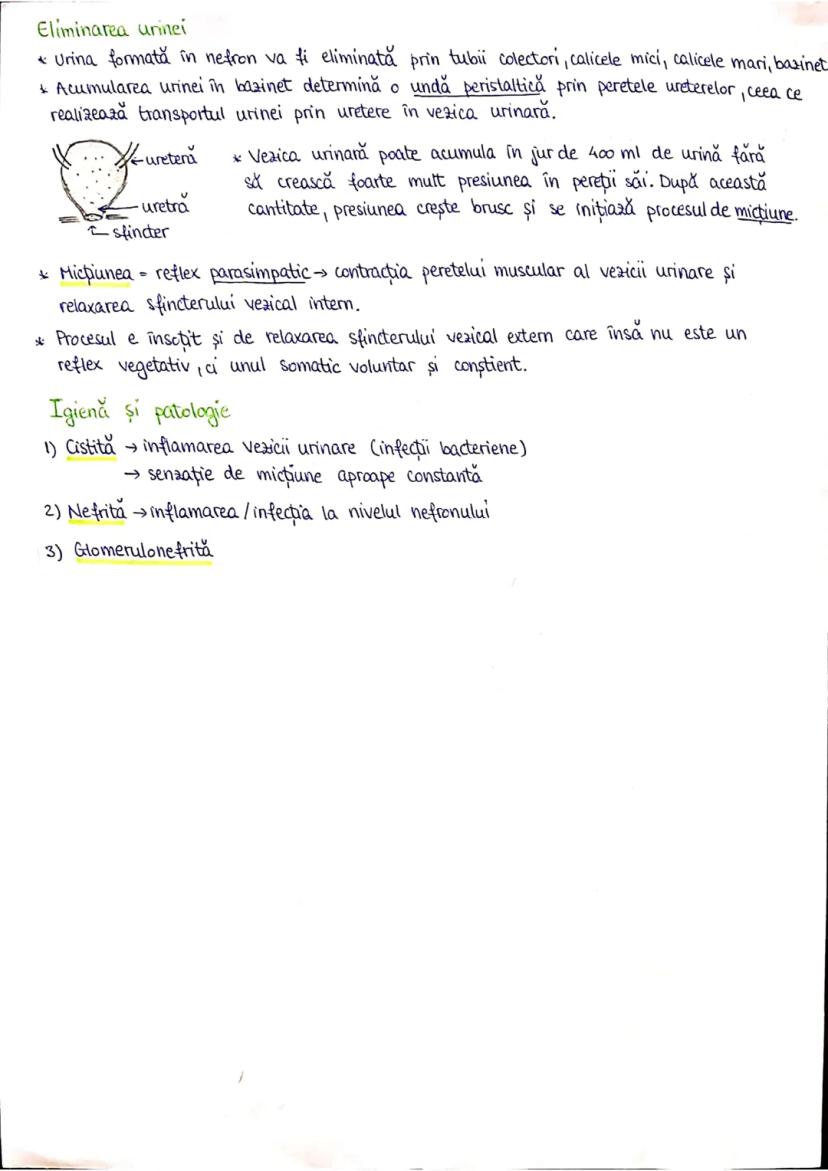 Eliminarea urinei
* Urina formată în nefron va fi eliminată prin tubii colectori, calicele mici, calicele mari, bazinet
* Acumularea urinei în bazinet determină o undă peristaltică prin peretele ureterelor, ceea ce
realizează transportul urinei prin uretere în vezica urinară.
← ureteră
← uretră
sfincter
* Vezica urinară poate acumula în jur de 400 ml de urină fără
să crească foarte mult presiunea în pereții săi. După această
cantitate, presiunea crește brusc și se inițiază procesul de micțiune.
* Micțiunea = reflex parasimpatic → contracția peretelui muscular al vezicii urinare și
relaxarea sfincterului vezical intern.
* Procesul e însoțit și de relaxarea sfincterului vezical extern care însă nu este un
reflex vegetativ, ci unul somatic voluntar și conștient.
Igienă și patologie
1) Cistită → inflamarea vezicii urinare (infecții bacteriene)
→ senzație de micțiune aproape constantă
2) Nefrită → inflamarea / infecția la nivelul nefronului
3) Glomerulonefrită